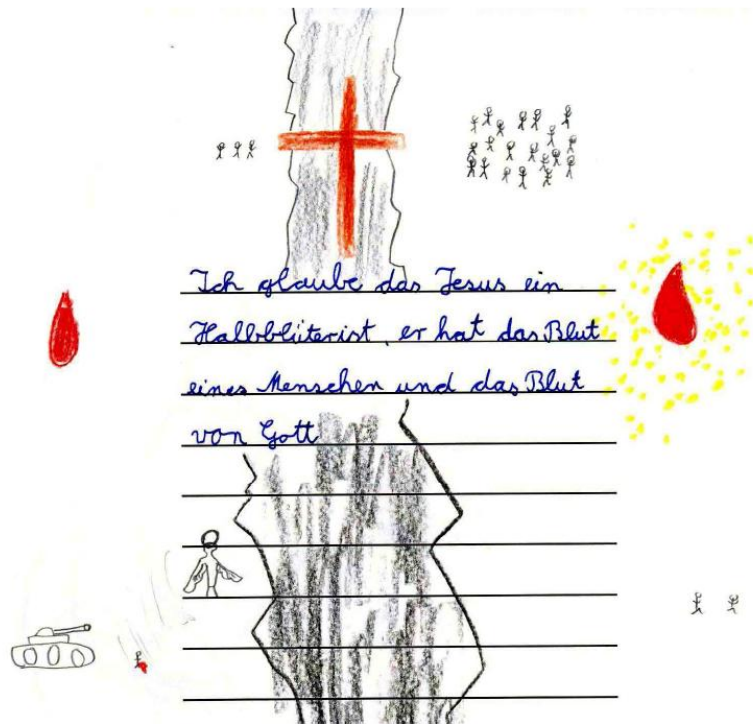 Ich glaube das Jesus ein
Halbblüterist, er hat das Blut
eines Menschen und das Blut
von Gott